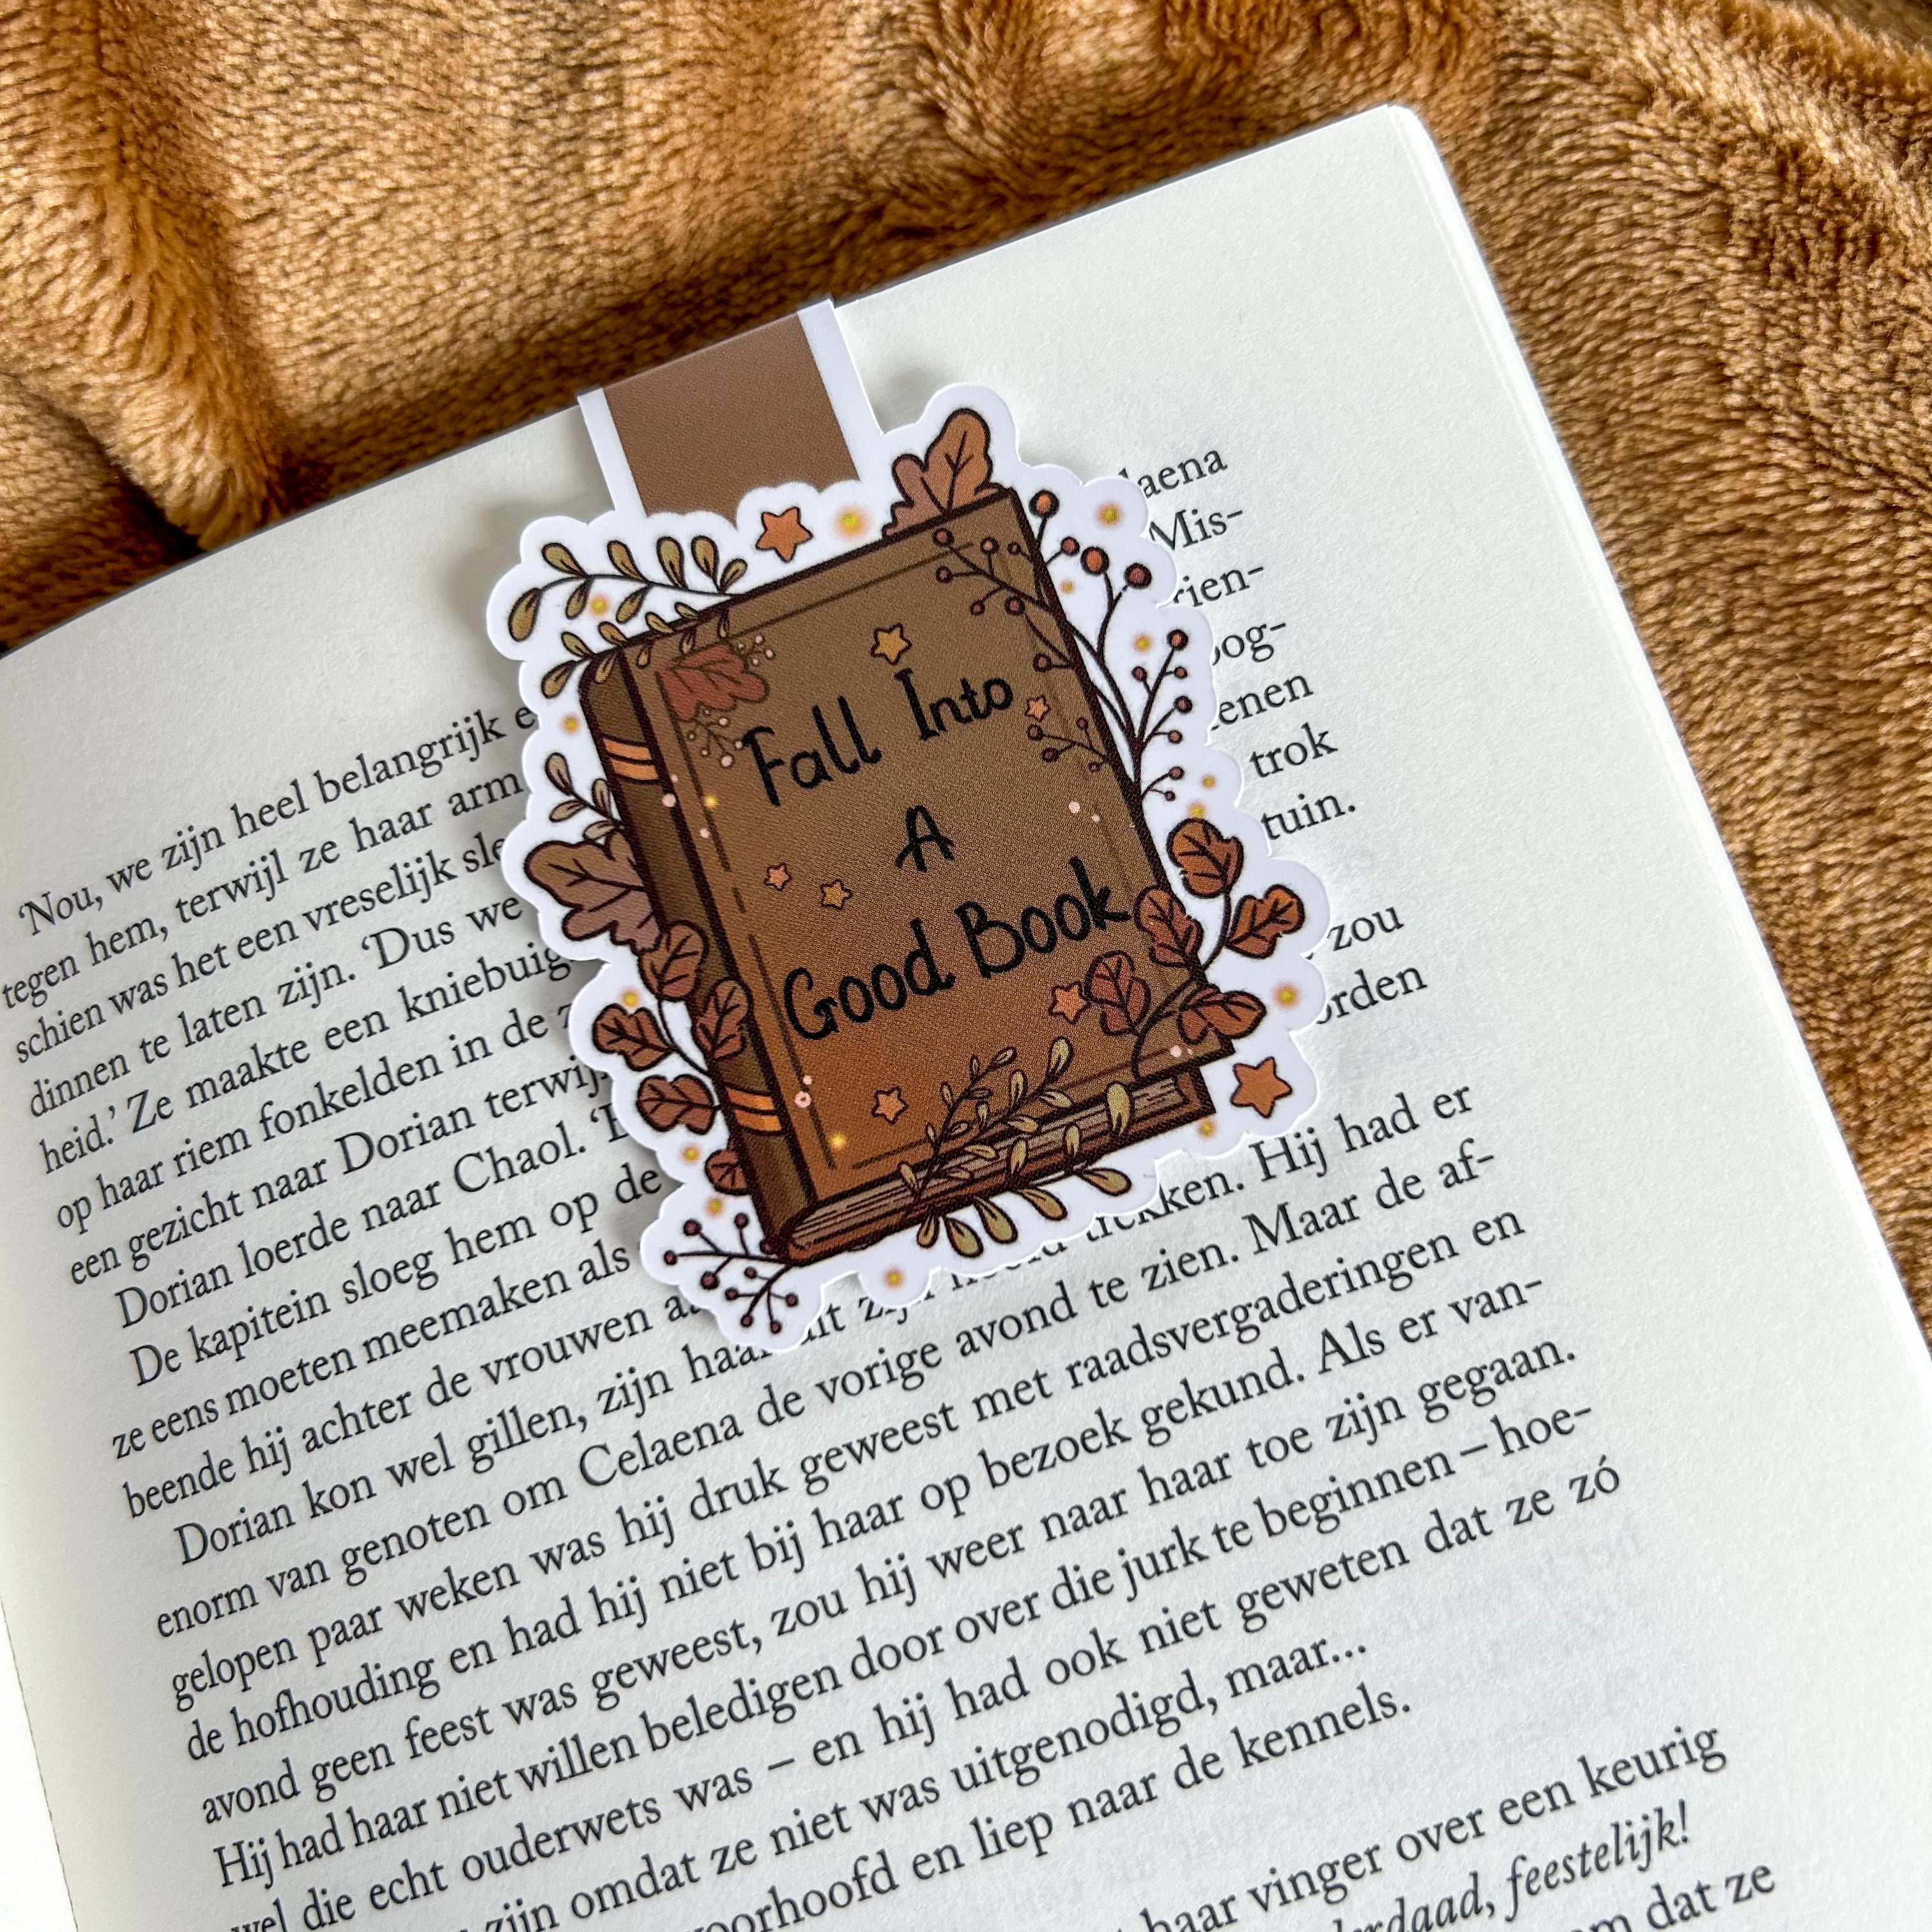 Fall Into
A
Good Book
Mis-
trok
'Nou, we zijn heel belangrijk
tuin.
tegen hem, terwijl ze haar arm
schien was het een vreselijk
dinnen te laten zijn. 'Dus we
zou
heid.' Ze maakte een
op haar riem fonkelden in de
een gezicht naar Dorian
Dorian loerde naar Chaol.
De kapitein sloeg hem op de
trekken. Hij had er
ze eens moeten meemaken als
beende hij achter de vrouwen
Maar de af-
Dorian kon wel gillen, zijn haar uit zijn hoofd
enorm van genoten om Celaena de vorige avond te zien.
gelopen paar weken was hij druk geweest met raadsvergaderingen en
de hofhouding en had hij niet bij haar op bezoek gekund. Als er van-
avond geen feest was geweest, zou hij weer naar haar toe zijn gegaan.
Hij had haar niet willen beledigen door over die jurk te beginnen – hoe-
wel die echt ouderwets was – en hij had ook niet geweten dat ze zó
zijn omdat ze niet was uitgenodigd, maar...
voorhoofd en liep naar de kennels.
haar vinger over een keurig
feestelijk!
dat ze